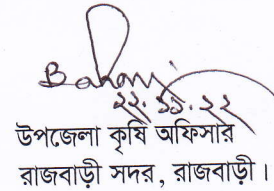 ২২.১১.২২
উপজেলা কৃষি অফিসার
রাজবাড়ী সদর, রাজবাড়ী।